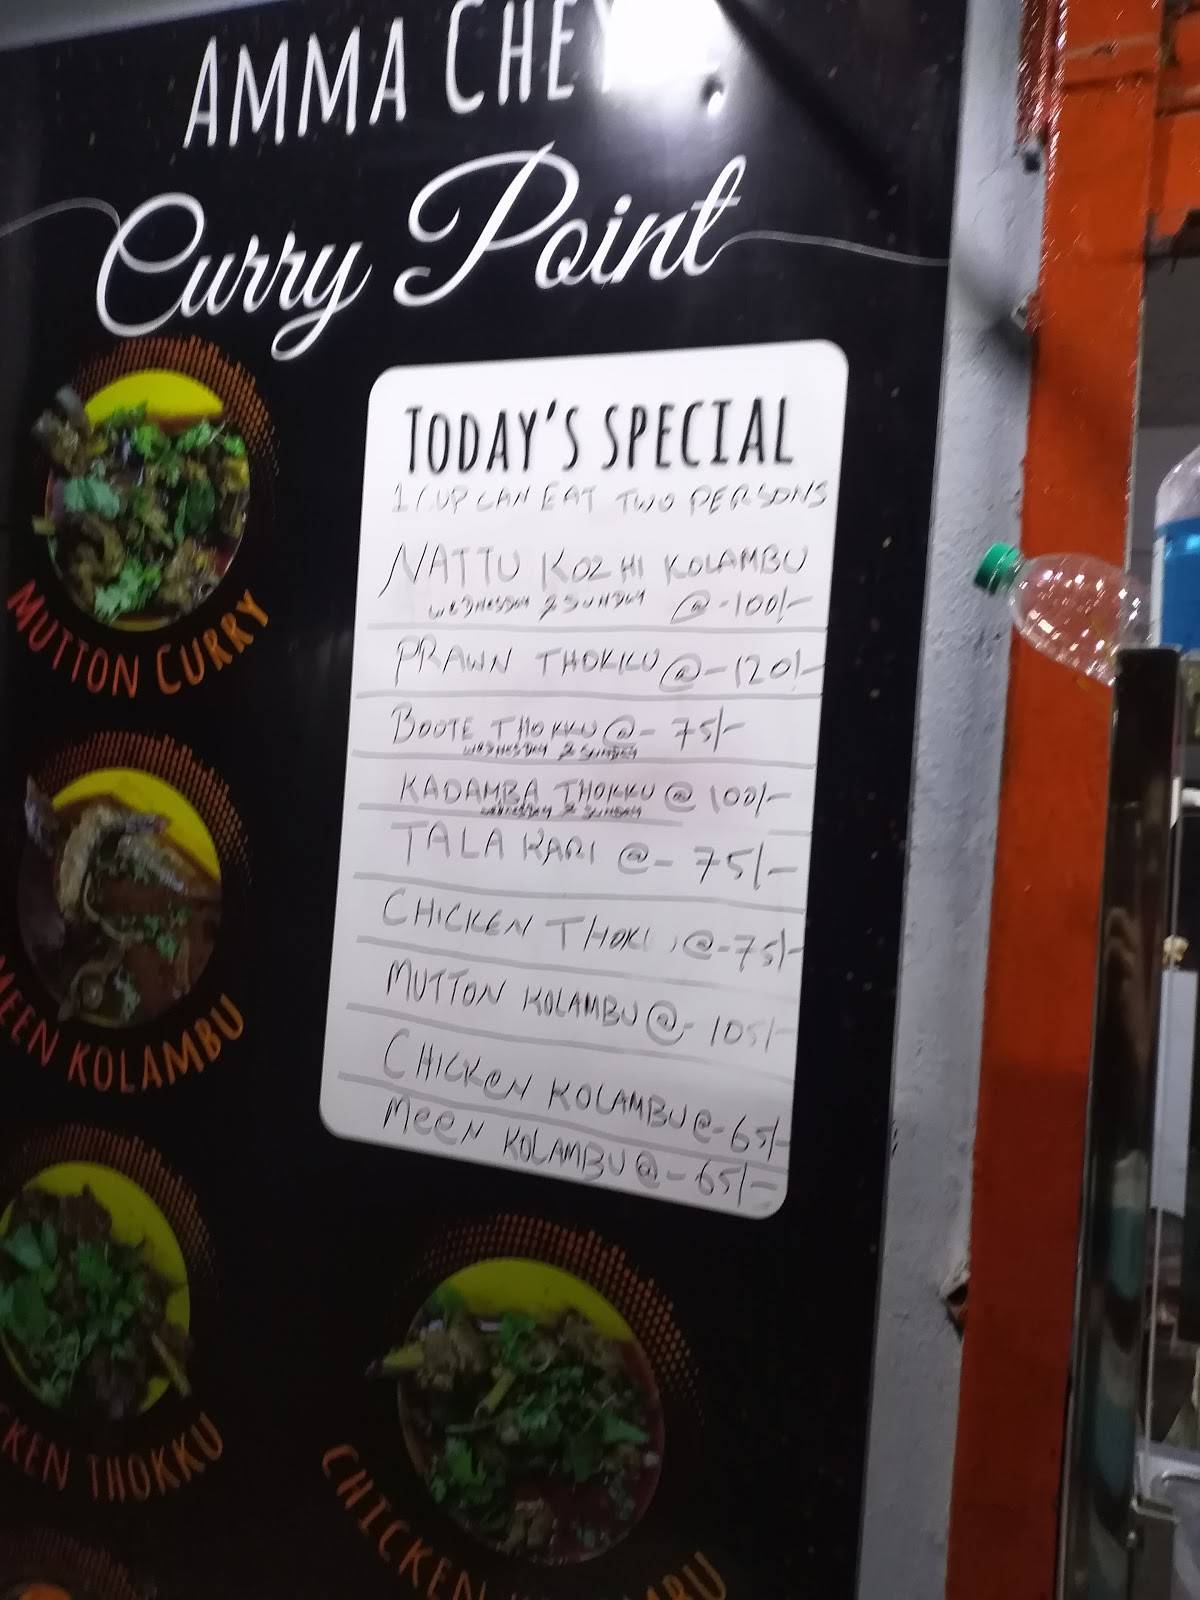 AMMA
Curry Point
TODAY'S SPECIAL
1 CUP CAN EAT TWO PERSONS
NATTU KOZHI KOLAMBU
WEDNESDAY & SUNDAY @-100/-
PRAWN THOKKU @-120/-
BOOTE THOKKU @- 75/-
WEDNESDAY & SUNDAY
KADAMBA THOKKU @ 100/-
WEDNESDAY & SUNDAY
TALA KARI @- 75/-
CHICKEN @-75/-
MUTTON KOLAMBU @- 105/-
CHICKEN KOLAMBU @- 65/-
MEEN KOLAMBU @- 65/-
MUTTON CURRY
MEEN KOLAMBU
THOKKU
CHICKEN